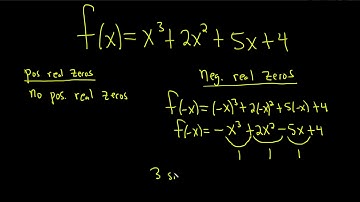 f(x) = x³ + 2x² + 5x + 4
pos real zeros
no pos. real zeros
Neg. real zeros
f(-x) = (-x)³ + 2(-x)² + 5(-x) + 4
f(-x) = -x³ + 2x² - 5x + 4
1 1 1
3